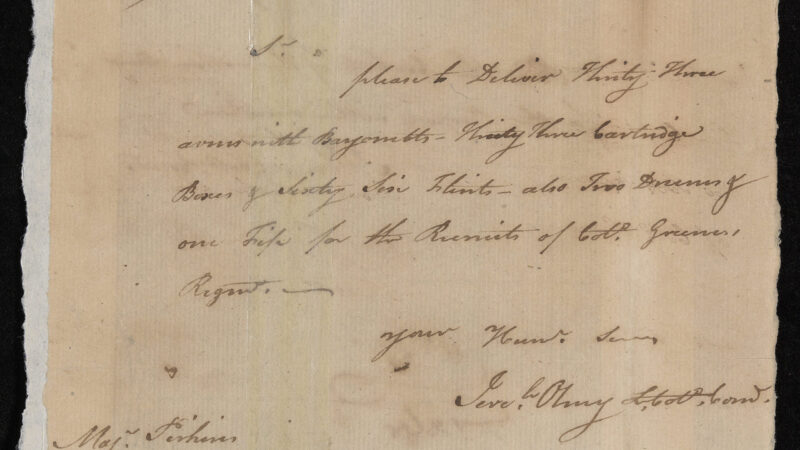 Sr
please to Deliver Thirty Three
arms with Bayonetts - Thirty Three Cartridge
Boxes & Sixty Six Flints - also Two Drums &
one Fife for the Recruits of Colo. Greenes,
Regmt. —
your Humr. Serv
Jereh. Olney Lt. Colo. Comd.
Majr. Perkins